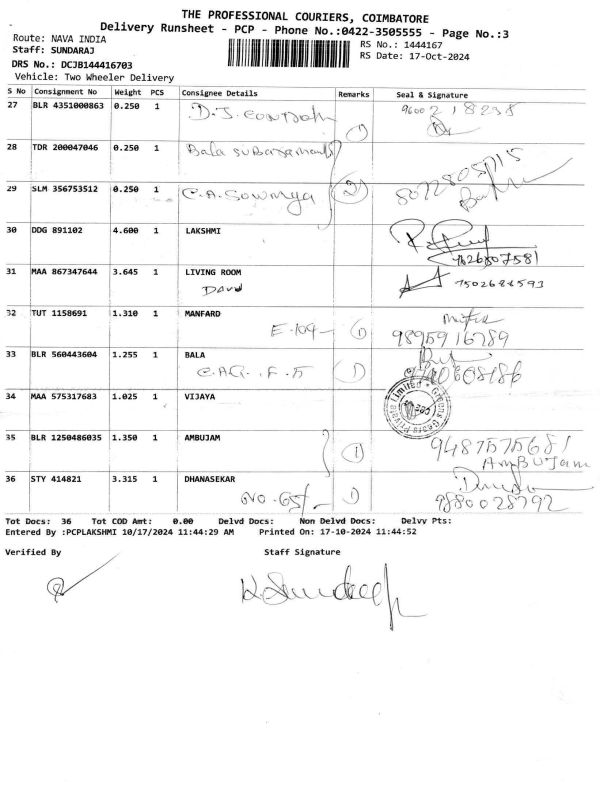 THE PROFESSIONAL COURIERS, COIMBATORE
Delivery Runsheet - PCP - Phone No.:0422-3505555 - Page No.:3
Route: NAVA INDIA
RS No.: 1444167
Staff: SUNDARAJ
RS Date: 17-Oct-2024
DRS No.: DCJB144416703
Vehicle: Two Wheeler Delivery
S No Consignment No Weight PCS Consignee Details Remarks Seal & Signature
27 BLR 4351000863 0.250 1 D.J. 1 9600218238
28 TDR 200047046 0.250 1 Bala
29 SLM 356753512 0.250 1 C.A. Sowmya 2 8072805715
30 DDG 891102 4.600 1 LAKSHMI
7626807581
31 MAA 867347644 3.645 1 LIVING ROOM
David 7502686593
32 TUT 1158691 1.310 1 MANFARD
E-109- 1 9895916789
33 BLR 560443604 1.255 1 BALA
1
34 MAA 575317683 1.025 1 VIJAYA
Private Limited
35 BLR 1250486035 1.350 1 AMBUJAM 1 9487575681
AmBUJam
36 STY 414821 3.315 1 DHANASEKAR
NO.657- 1 9880028792
Tot Docs: 36 Tot COD Amt: 0.00 Delvd Docs: Non Delvd Docs: Delvy Pts:
Entered By :PCPLAKSHMI 10/17/2024 11:44:29 AM Printed On: 17-10-2024 11:44:52
Verified By Staff Signature
K. Sundeep